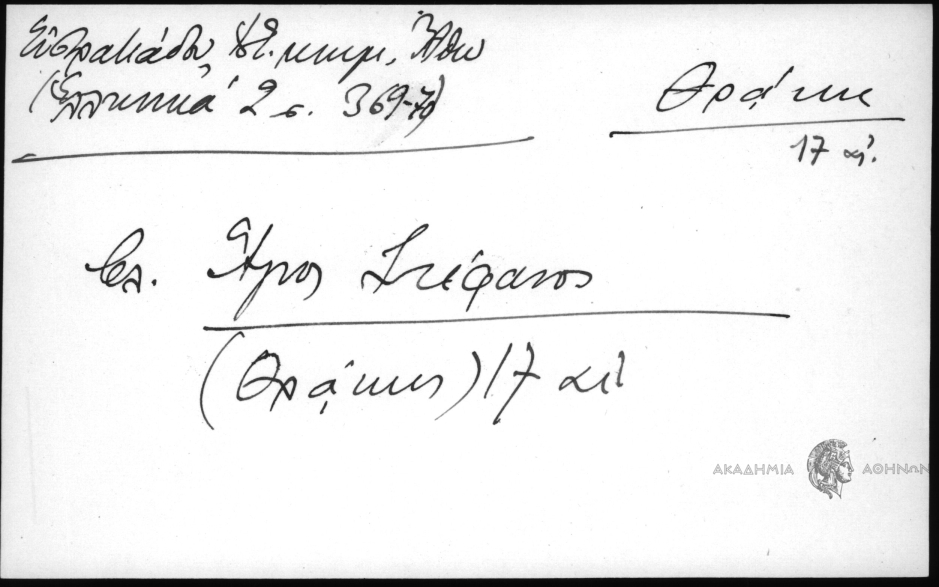 Εὐστρατιάδου, Ἁγ. μνημ., Ἄθω
(Ἑλληνικά 2 σ. 369-70)
Θρᾴκης
17 αἰ.
βλ. Ἅγιος Στέφανος
(Θρᾴκης) 17 αἰ
ΑΚΑΔΗΜΙΑ ΑΘΗΝΩΝ